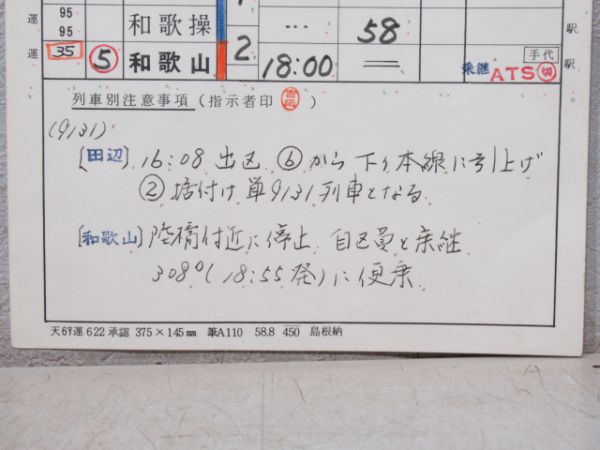 運 95 95 和歌操 1 … 58 駅
運 35 ⑤ 和歌山 2 18:00 = 乗継 ATS 切 手代 駅
列車別注意事項(指示者印 )
(9131)
[田辺] 16:08 出区 ⑥から下り本線に引上げ
② 据付け 単9131列車となる
[和歌山] 陸橋付近に停止 自区員と乗継
308D(18:55発)に便乗
天67運622承認 375×145㎜ 筆A110 58.8 450 島根納